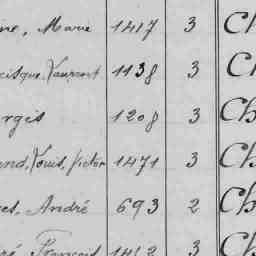 ine, Marie 1417 3 Ch
cisque, Laurent 1138 3 Ch
orgis 1208 3 Ch
end, Louis, Victor 1471 3 Ch
es, André 693 2 Ch
ré, François 1412 3 Ch